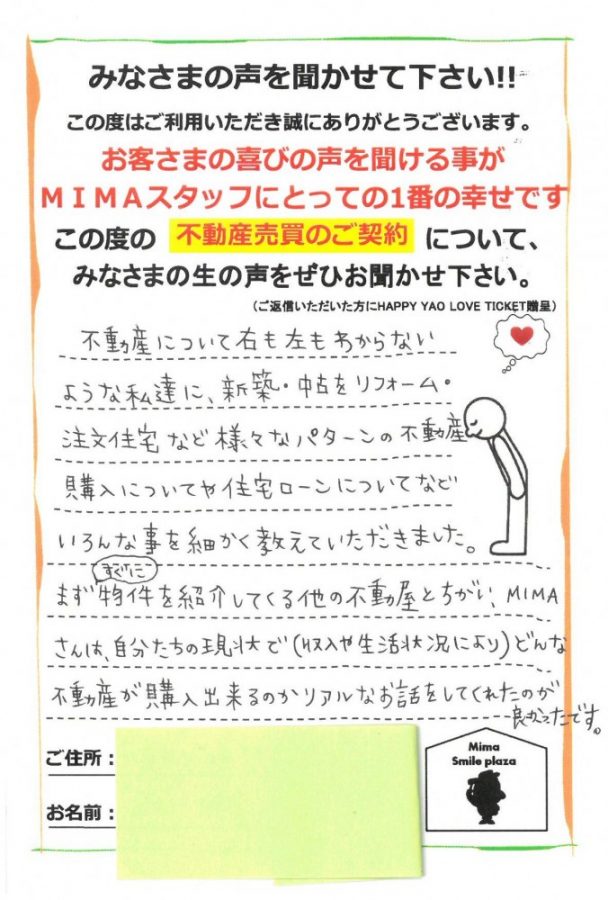 みなさまの声を聞かせて下さい!!
この度はご利用いただき誠にありがとうございます。
お客さまの喜びの声を聞ける事が
MIMAスタッフにとっての1番の幸せです
この度の 不動産売買のご契約 について、
みなさまの生の声をぜひお聞かせ下さい。
(ご返信いただいた方にHAPPY YAO LOVE TICKET贈呈)
不動産について右も左もわからない
ような私達に、新築・中古をリフォーム・
注文住宅など様々なパターンの不動産
購入についてや住宅ローンについてなど
いろんな事を細かく教えていただきました。
すぐに
まず物件を紹介してくる他の不動屋とちがい、MIMA
さんは、自分たちの現状で(収入や生活状況により)どんな
不動産が購入出来るのかリアルなお話をしてくれたのが
良かったです。
ご住所：
お名前：
Mima
Smile plaza